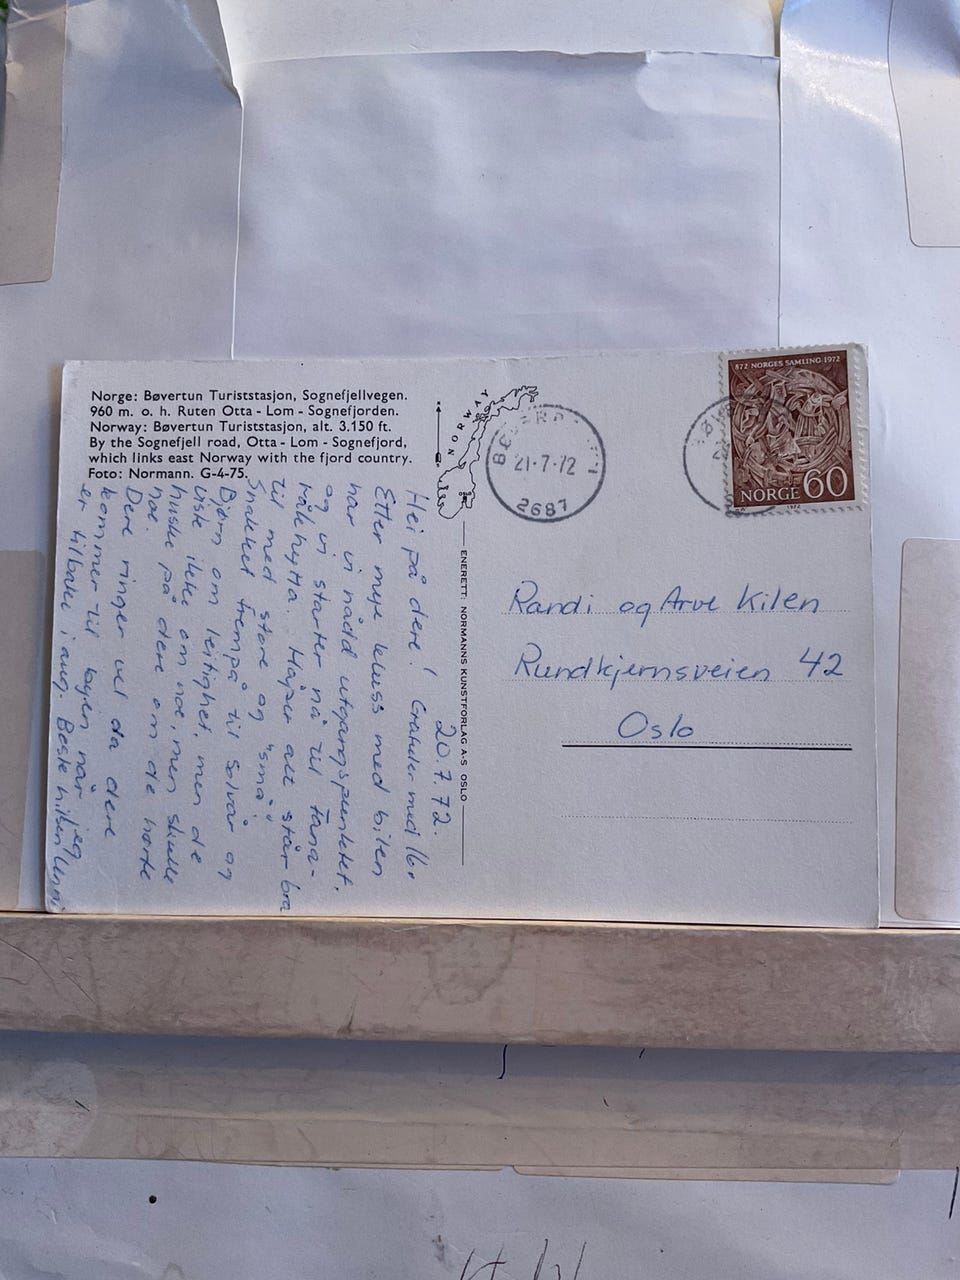 Norge: Bøvertun Turiststasjon, Sognefjellvegen.
960 m. o. h. Ruten Otta - Lom - Sognefjorden.
Norway: Bøvertun Turiststasjon, alt. 3.150 ft.
By the Sognefjell road, Otta - Lom - Sognefjord,
which links east Norway with the fjord country.
Foto: Normann. G-4-75.
20.7.72.
Hei på dere! Gratuler med 16.
Etter mye kluss med bilen
har vi nådd utgangspunktet,
og vi starter nå til Fana-
råkhytta. Håper alt står bra
til med store og "små".
Snakket frempå til Solvår og
Bjørn om leilighet, men de
visste ikke om noe, men skulle
huske på dere om de hørte
noe.
Dere ringer vel da dere
kommer til byen når jeg
er tilbake i aug. Beste hilsen
NORWAY
OSLO
ENERETT: NORMANNS KUNSTFORLAG A-S OSLO
21-7-72
2687
872 NORGES SAMLING 1972
NORGE 60
1972
Randi og Arve Kilen
Rundkjernsveien 42
Oslo